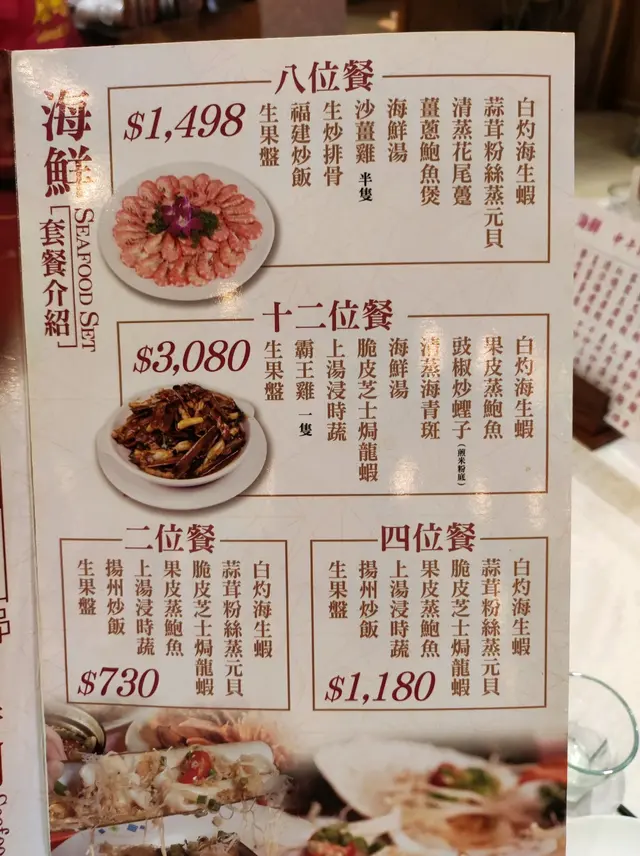 海鮮
SEAFOOD SET
套餐介紹
八位餐
$1,498
白灼海生蝦
蒜茸粉絲蒸元貝
清蒸花尾躉
薑蔥鮑魚煲
海鮮湯
沙薑雞 半隻
生炒排骨
福建炒飯
生果盤
十二位餐
$3,080
白灼海生蝦
果皮蒸鮑魚
豉椒炒蟶子(煎米粉底)
清蒸海青斑
海鮮湯
脆皮芝士焗龍蝦
上湯浸時蔬
霸王雞 一隻
生果盤
二位餐
白灼海生蝦
蒜茸粉絲蒸元貝
脆皮芝士焗龍蝦
果皮蒸鮑魚
上湯浸時蔬
揚州炒飯
生果盤
$730
四位餐
白灼海生蝦
蒜茸粉絲蒸元貝
脆皮芝士焗龍蝦
果皮蒸鮑魚
上湯浸時蔬
揚州炒飯
生果盤
$1,180